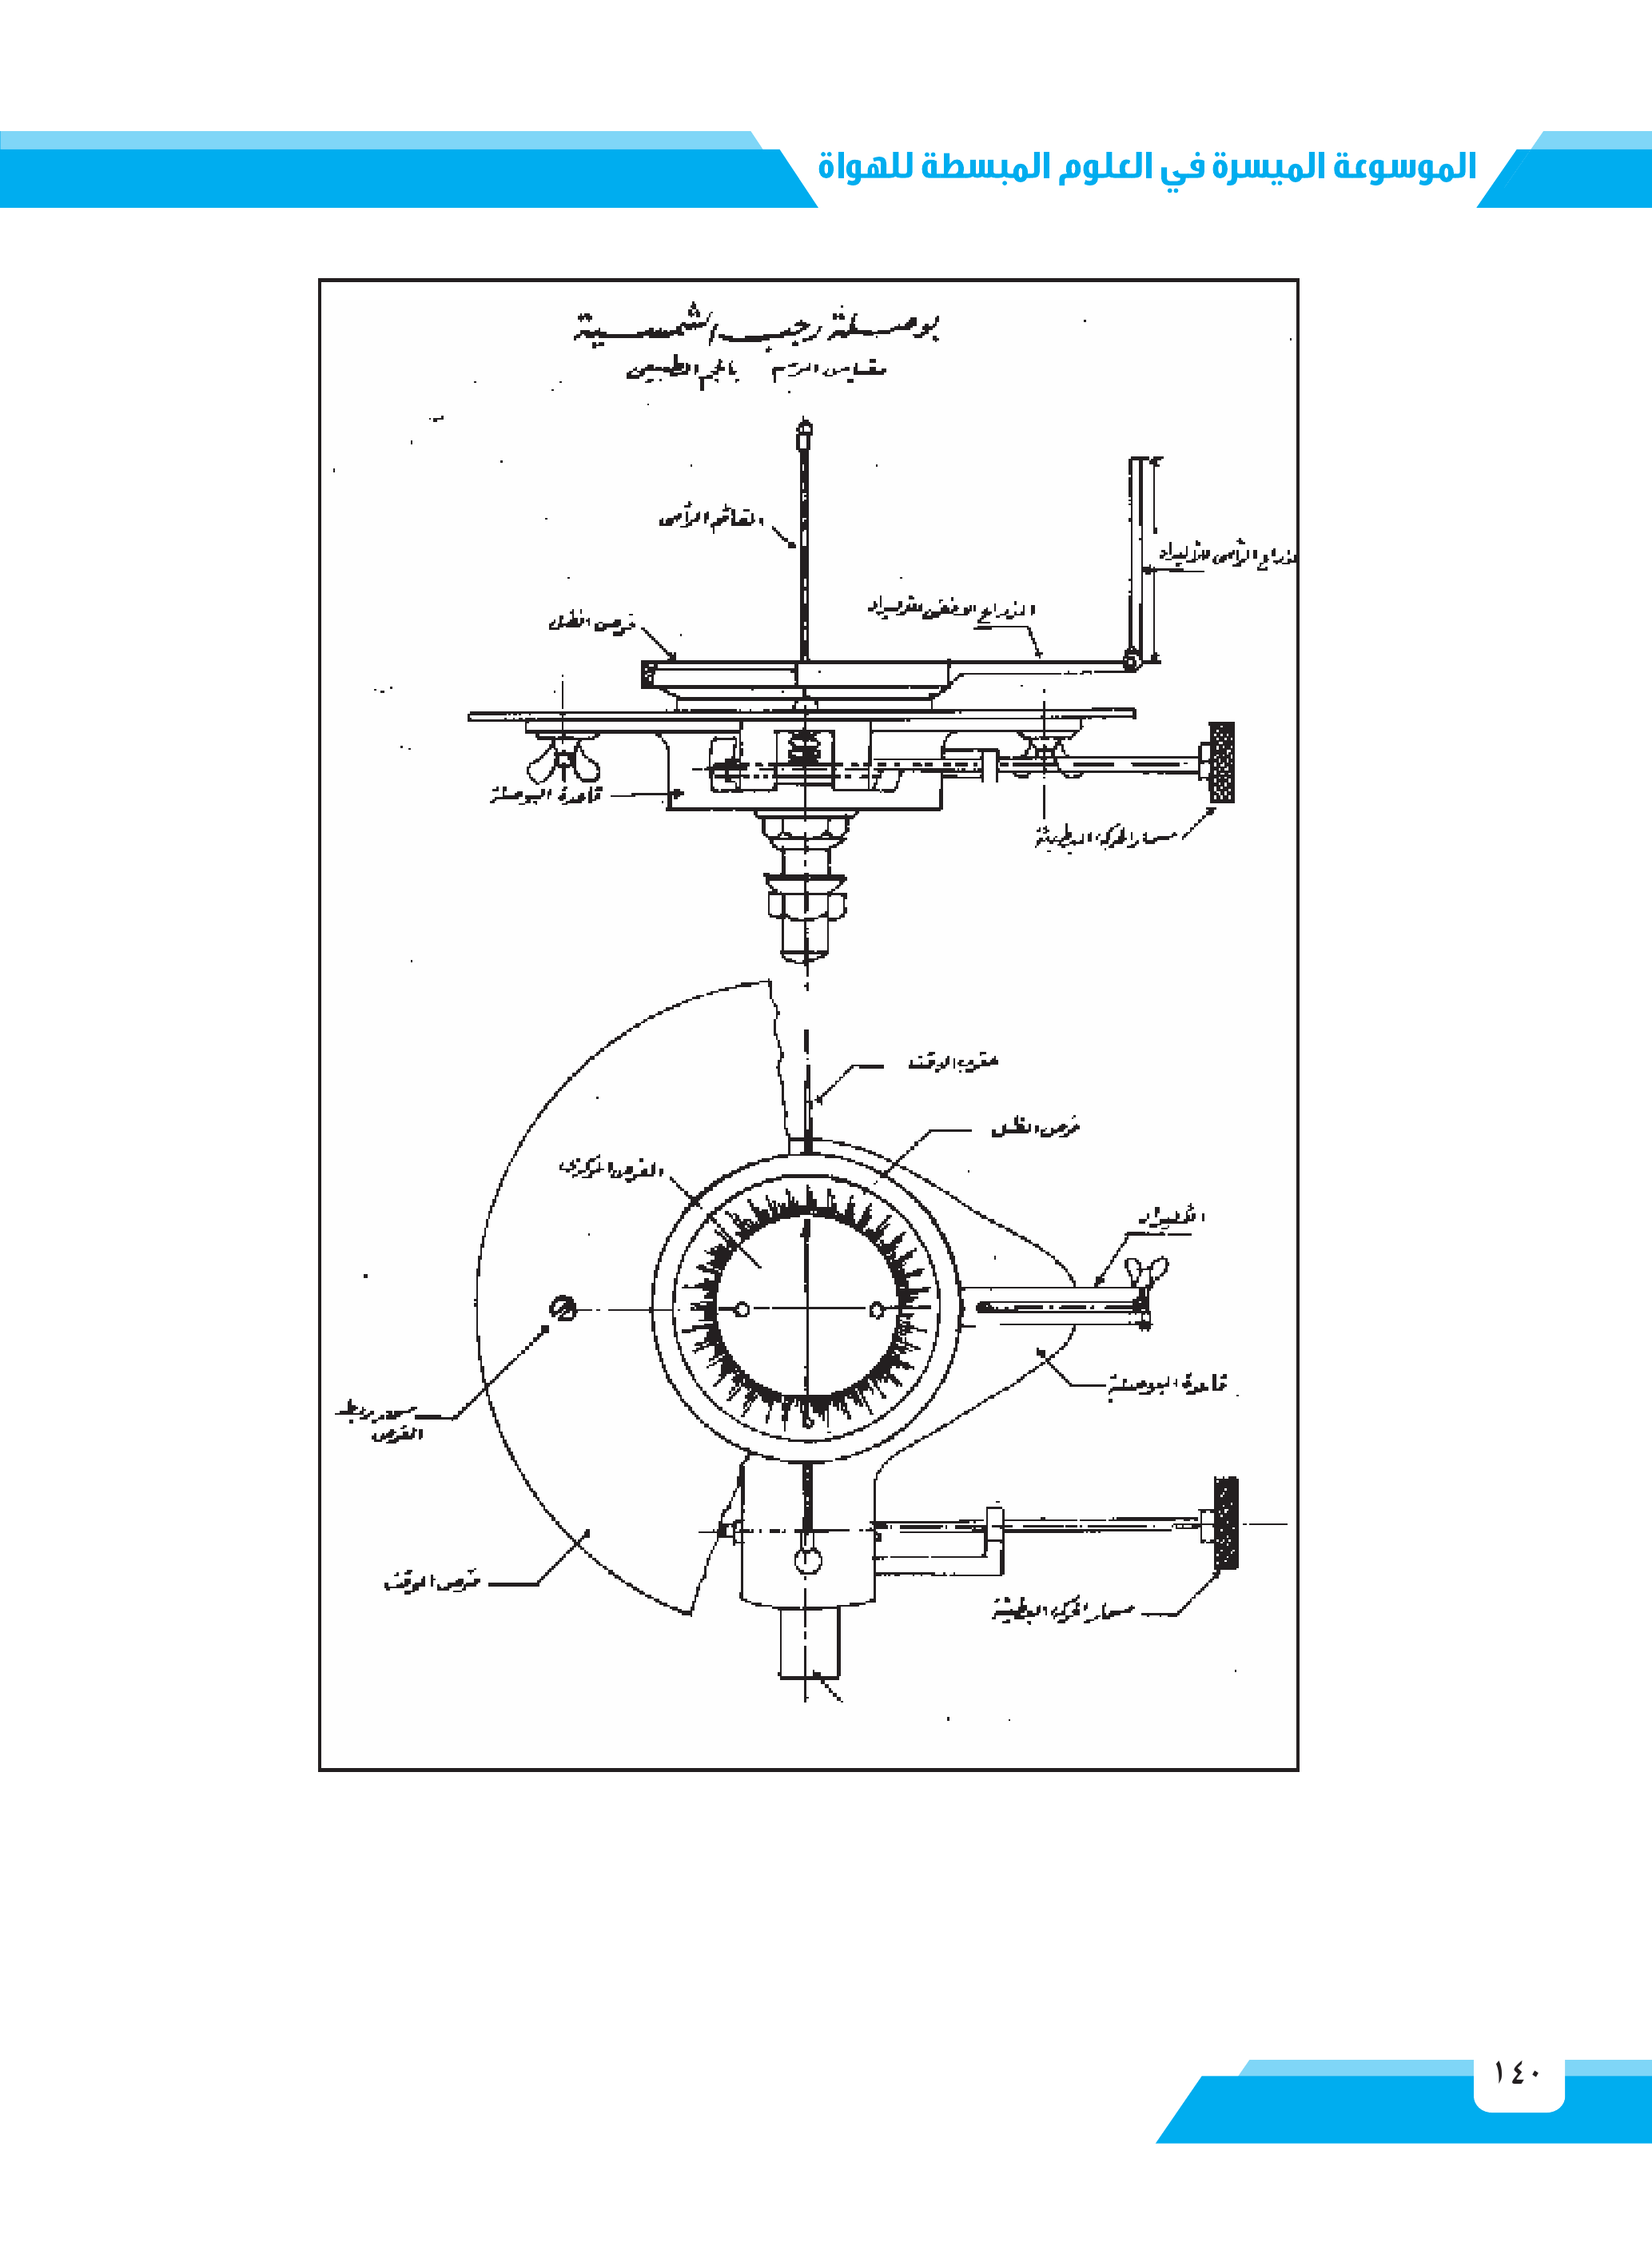 الموسوعة الميسرة في العلوم المبسطة للهواة
بوصلة رجب الشمسية
مقياس الرسم بالحجم الطبيعى
القائم الرأسى
الذراع الرأسى للأليداد
الذراع الافقى للأليداد
قرص الظل
قاعدة البوصلة
مسمار الحركة البطيئة
عقرب الوقت
قرص الظل
القرص المركزى
الأليداد
قاعدة البوصلة
مسمار رباط
القرص
قرص الوقت
مسمار الحركة البطيئة
١٤٠